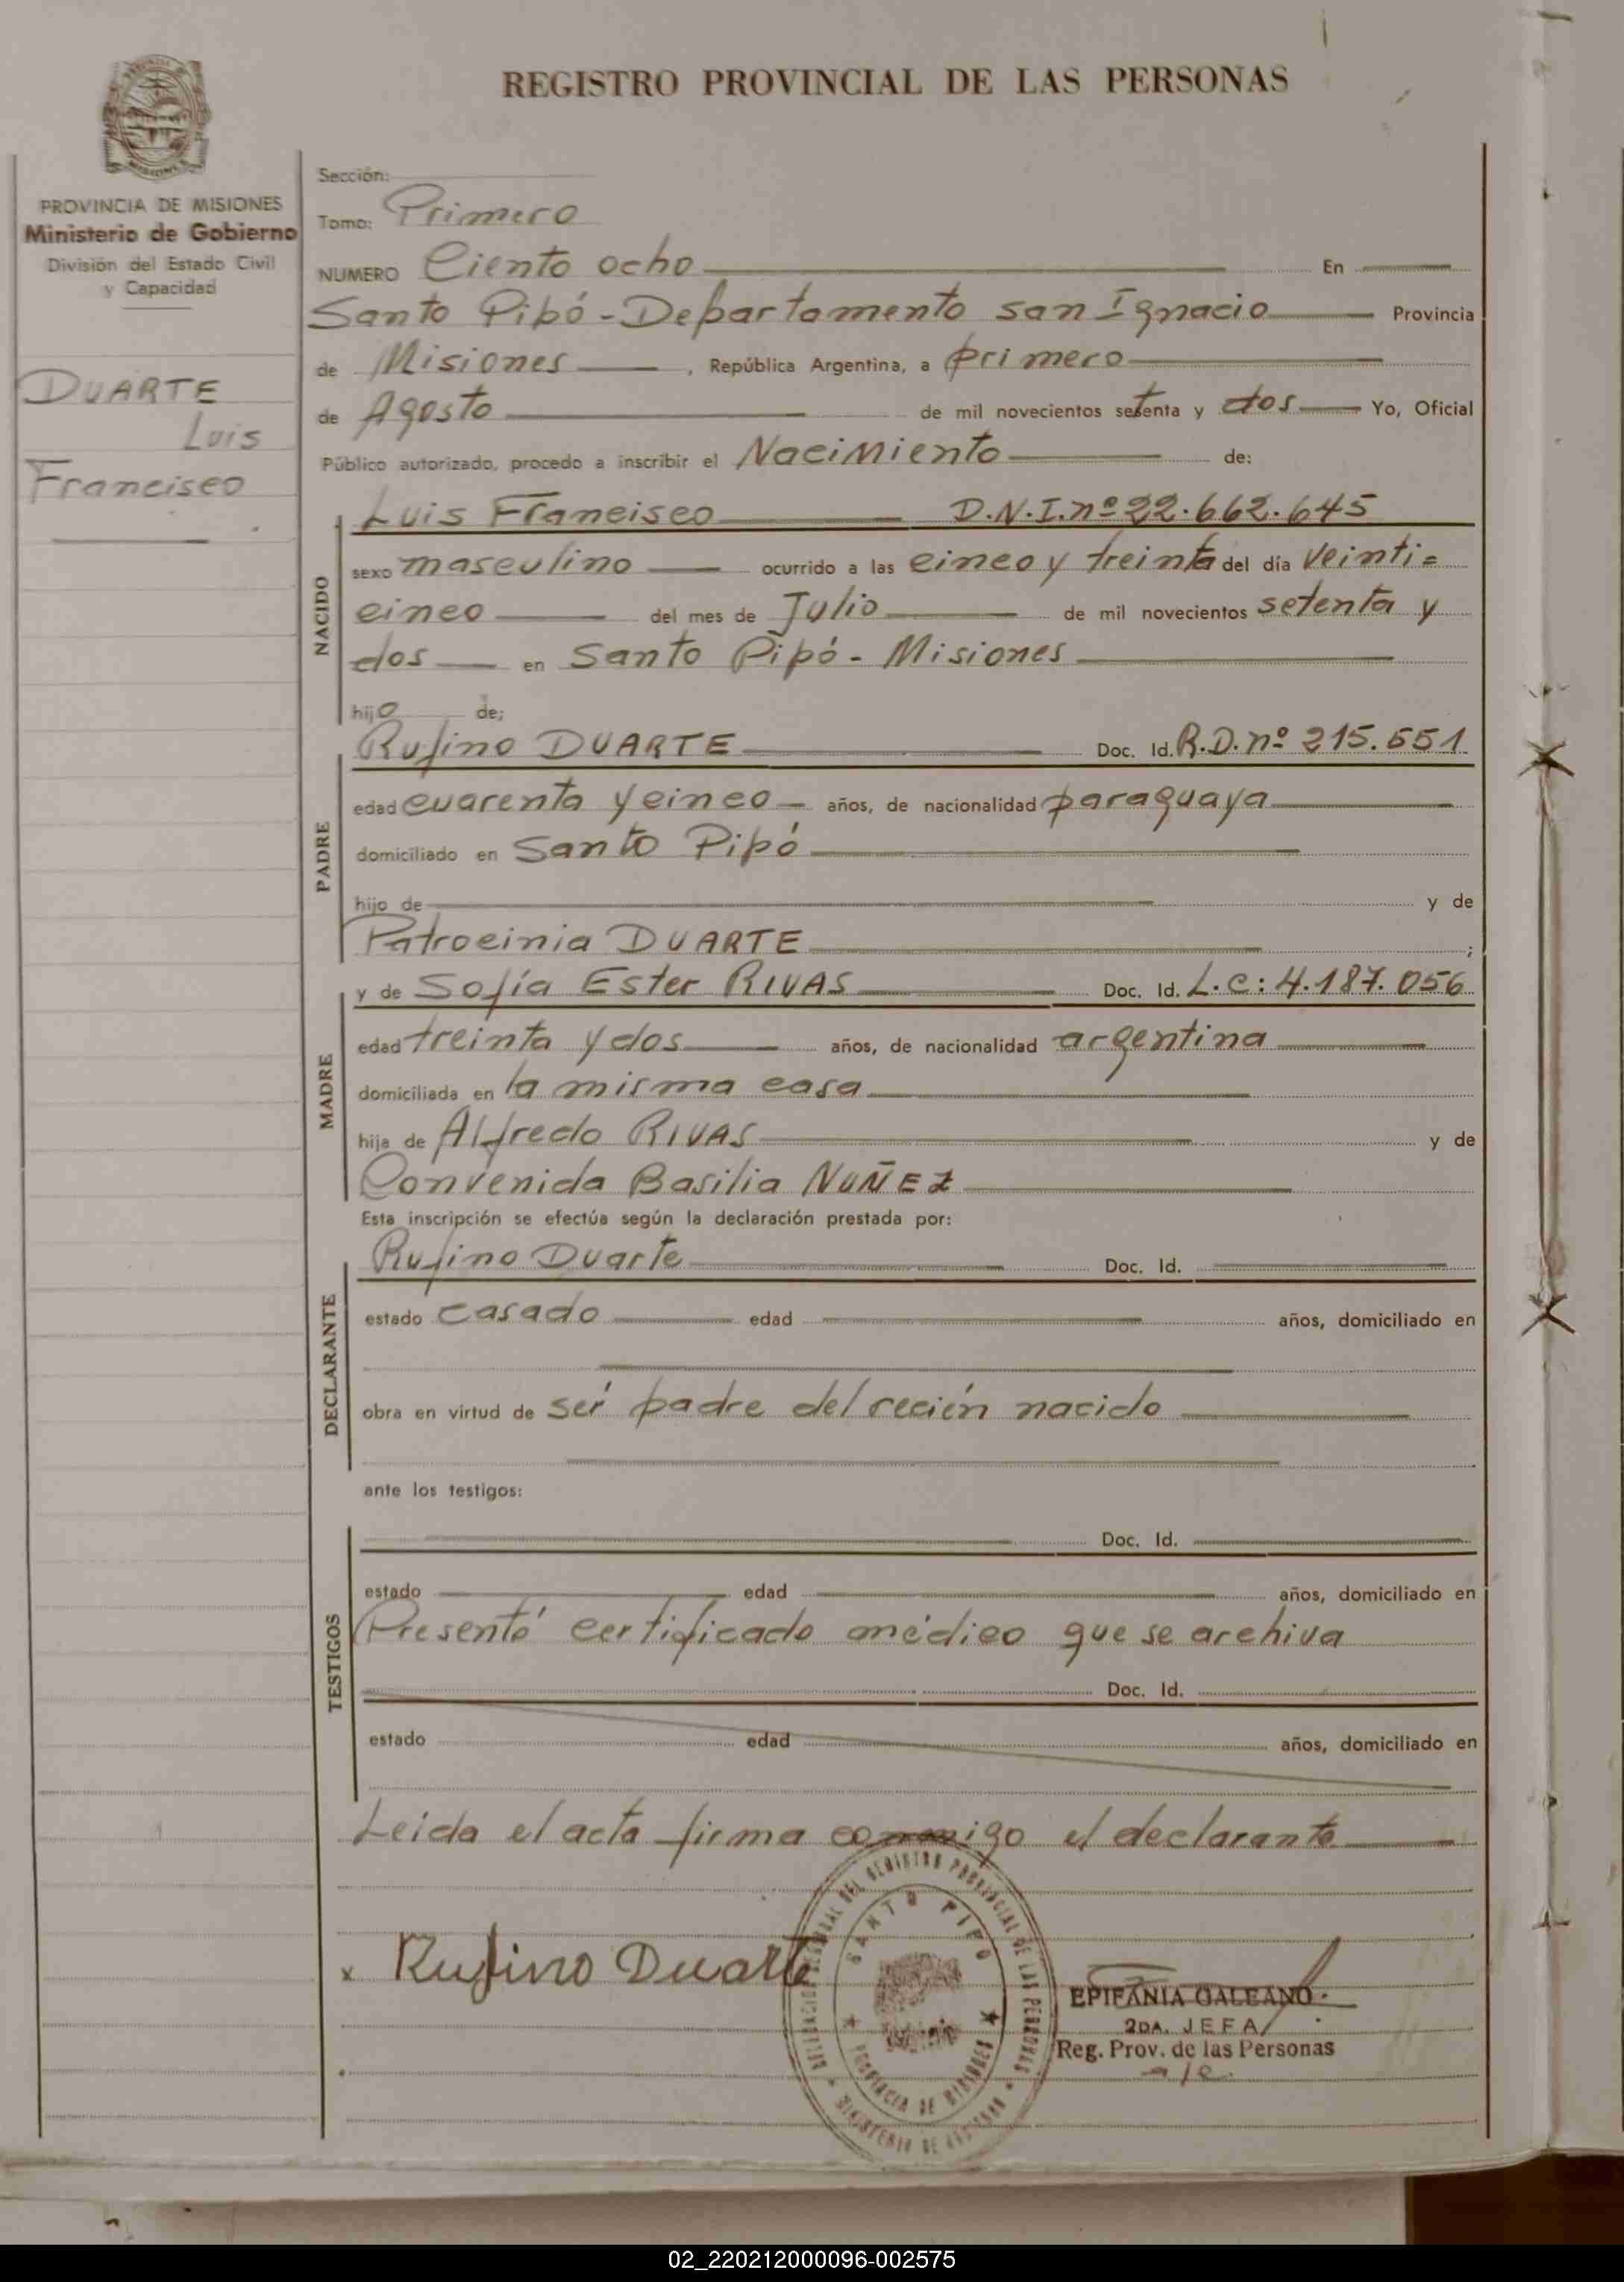 REGISTRO PROVINCIAL DE LAS PERSONAS
PROVINCIA DE MISIONES
Ministerio de Gobierno
División del Estado Civil
y Capacidad
DUARTE
Luis
Francisco
Sección:
Tomo: Primero
NUMERO Ciento ocho En
Santo Pipó - Departamento san Ignacio Provincia
de Misiones , República Argentina, a primero
de Agosto de mil novecientos setenta y dos Yo, Oficial
Público autorizado, procedo a inscribir el Nacimiento de:
NACIDO
Luis Francisco D.N.I. nº 22.662.645
sexo masculino ocurrido a las cinco y treinta del día veinti=
cinco del mes de Julio de mil novecientos setenta y
dos en Santo Pipó - Misiones
hijo de;
PADRE
Rufino DUARTE Doc. Id. R.D. nº 215.551
edad cuarenta y cinco años, de nacionalidad paraguaya
domiciliado en Santo Pipó
hijo de y de
Patrocinia DUARTE ;
MADRE
y de Sofía Ester RIVAS Doc. Id. L.C: 4.187.056
edad treinta y dos años, de nacionalidad argentina
domiciliada en la misma casa
hija de Alfredo RIVAS y de
Convenida Basilia NUÑEZ
Esta inscripción se efectúa según la declaración prestada por:
DECLARANTE
Rufino Duarte Doc. Id.
estado casado edad años, domiciliado en
obra en virtud de ser padre del recién nacido
ante los testigos:
TESTIGOS
Doc. Id.
estado edad años, domiciliado en
Presentó certificado médico que se archiva
Doc. Id.
estado edad años, domiciliado en
Leida el acta firma conmigo el declarante
x Rufino Duarte
DELEGACION DEL REGISTRO PROVINCIAL DE LAS PERSONAS
SANTO PIPO
PROVINCIA DE MISIONES
MINISTERIO DE GOBIERNO
EPIFANIA GALEANO
2DA. JEFA
Reg. Prov. de las Personas
02_220212000096-002575